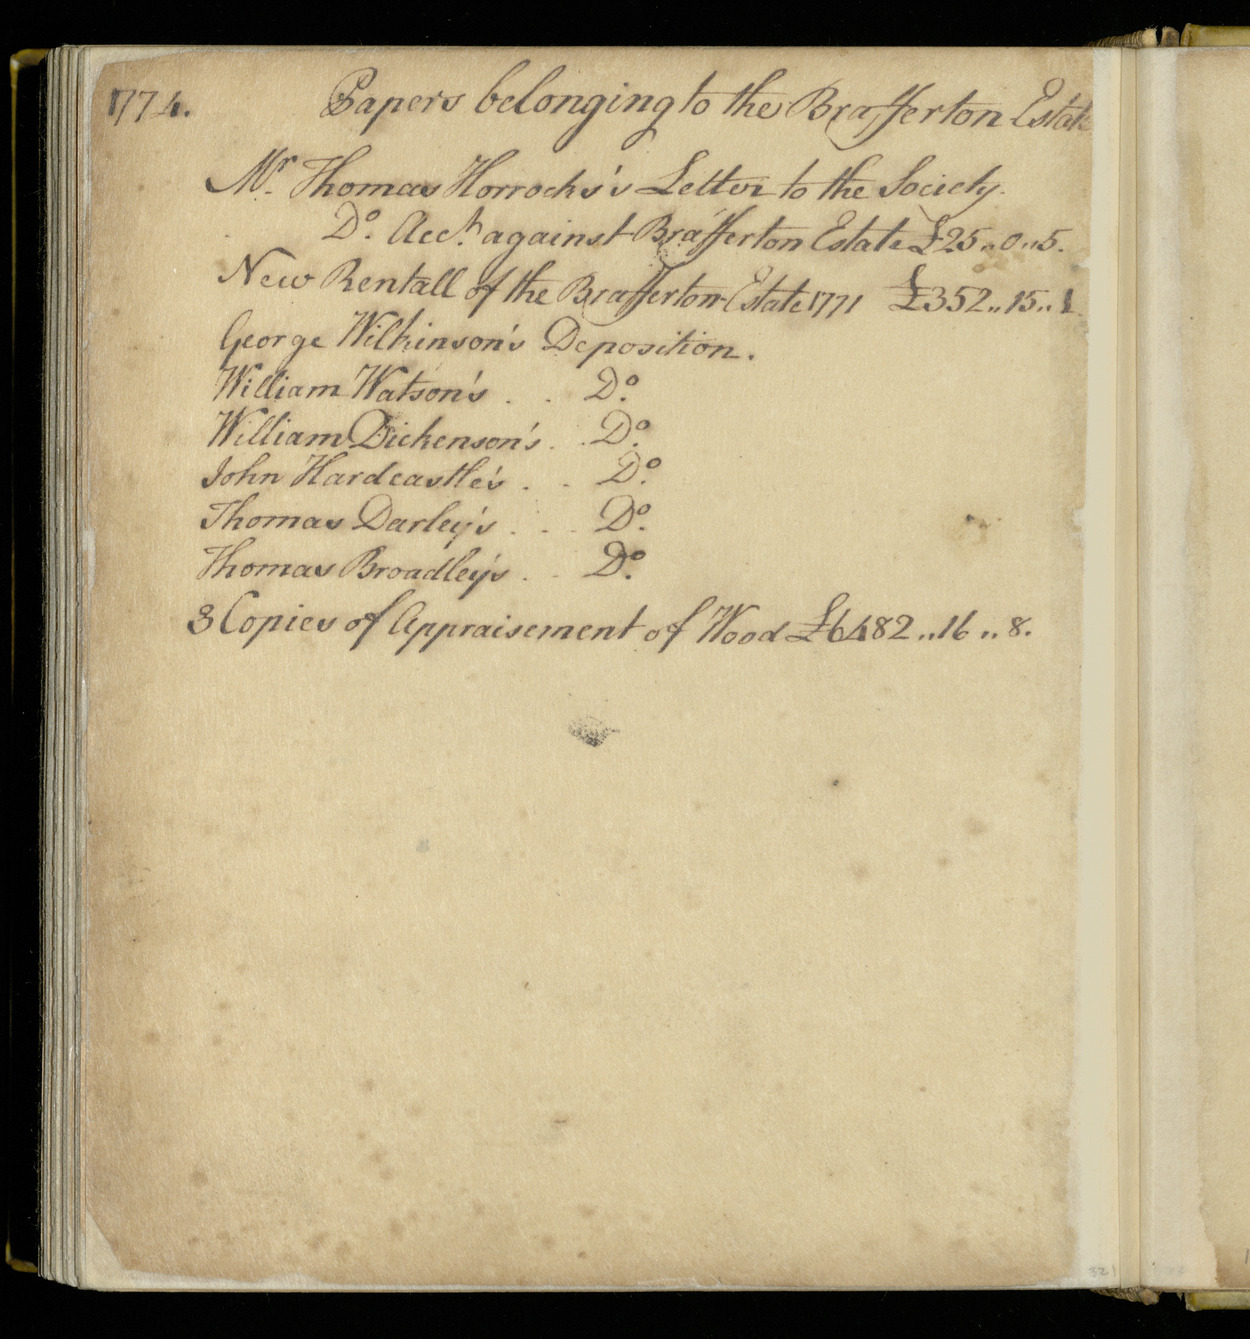 1774.
Papers belonging to the Brafferton Estate
Mr. Thomas Horrocks's Letter to the Society.
Do. Acct. against Brafferton Estate £25,,0,,5.
New Rentall of the Brafferton Estate 1771 £352,,15,,1
George Wilkinson's Deposition.
William Watson's . . Do.
William Dickenson's . . Do.
John Hardcastle's . . Do.
Thomas Darley's . . . Do.
Thomas Broadley's . . Do.
3 Copies of Appraisement of Wood £6482,,16,,8.
321